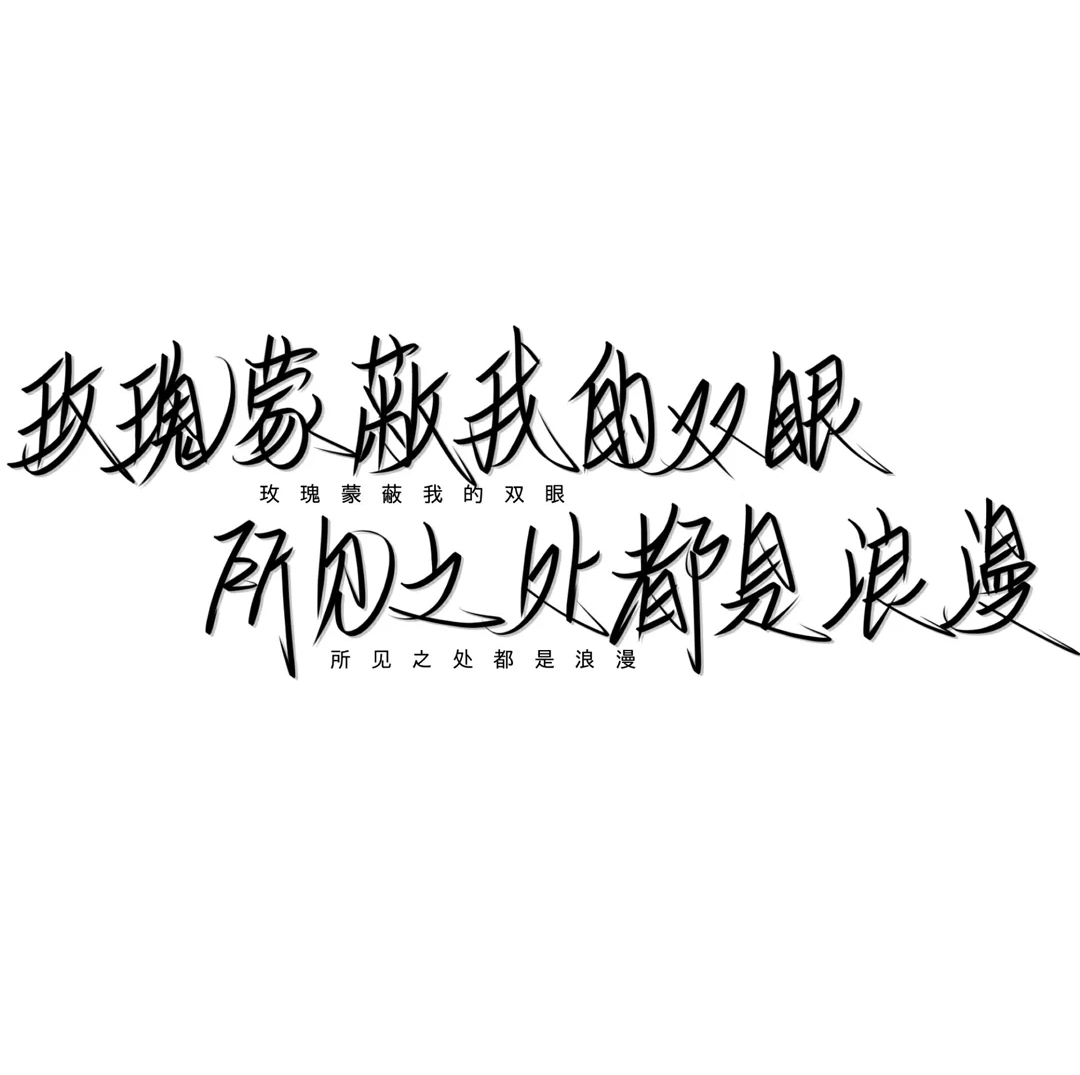 玫瑰蒙蔽我的双眼
玫瑰蒙蔽我的双眼
所见之处都是浪漫
所见之处都是浪漫